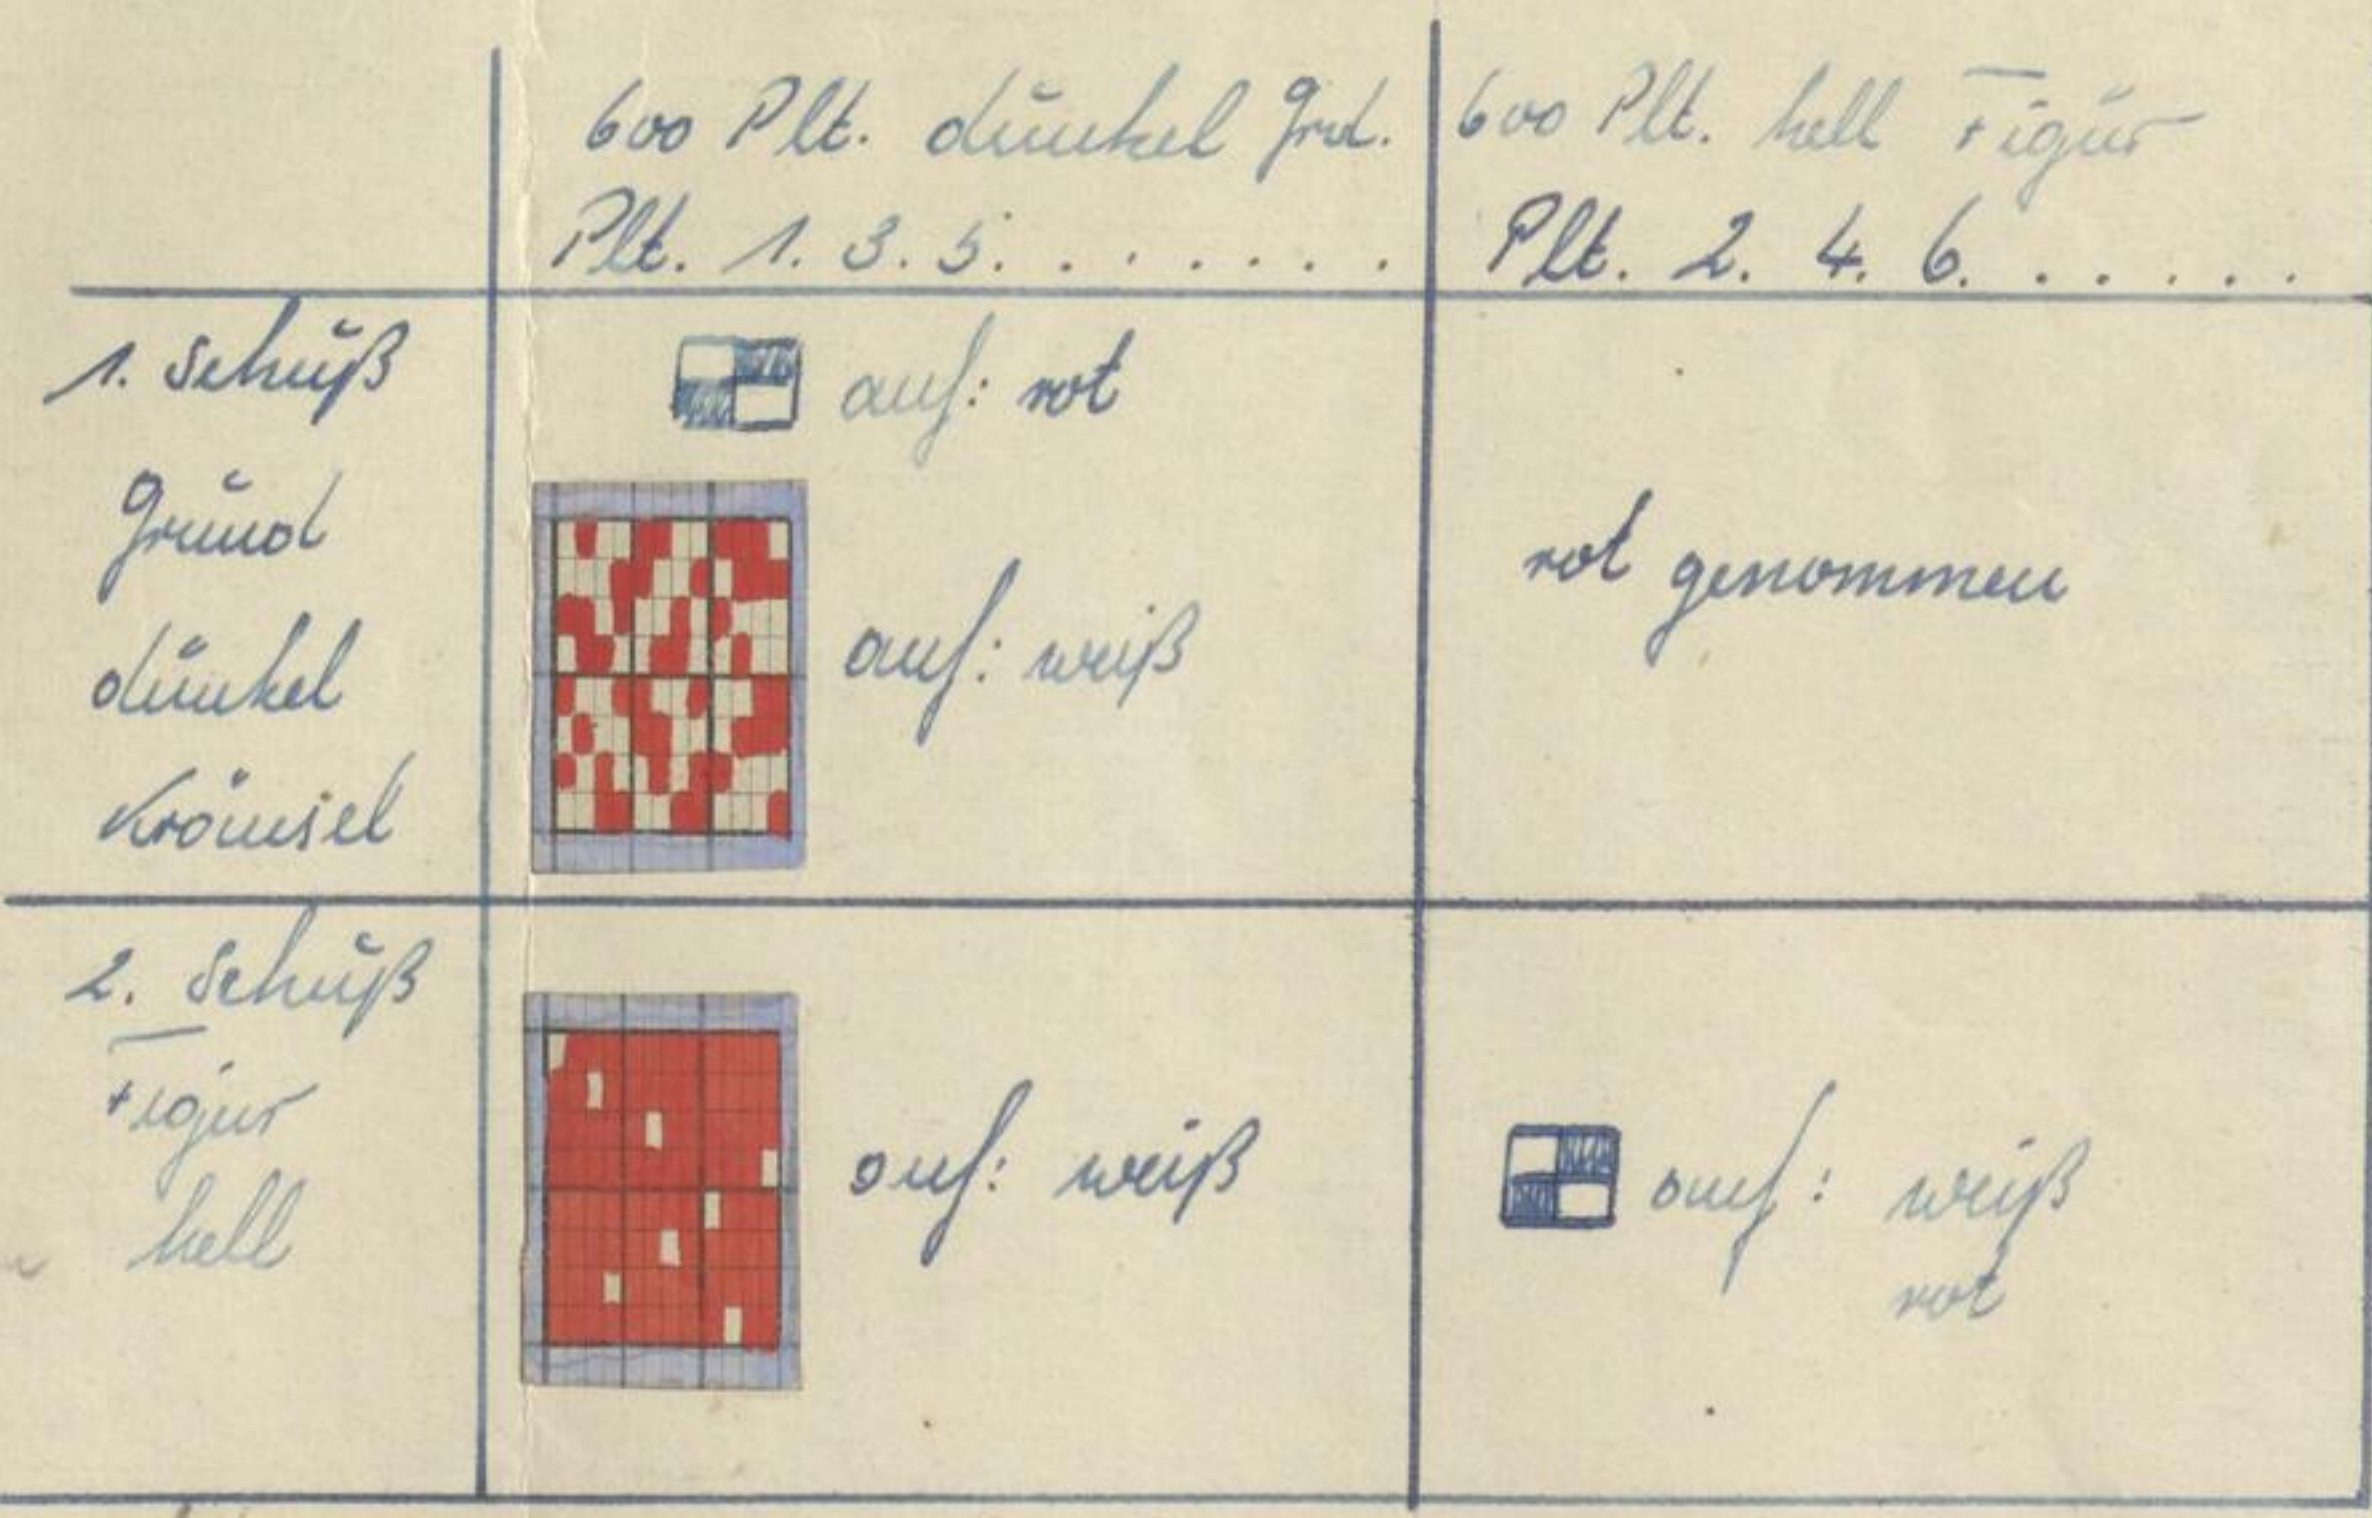 600 Plt. dunkel Grd.
600 Plt. hell Figur
Plt. 1. 3. 5. . . . . . .
Plt. 2. 4. 6. . . . . .
1. Schuß
Grund
dunkel
Kräusel
auf: rot
auf: weiß
rot genommen
2. Schuß
Figur
hell
auf: weiß
auf: weiß
rot